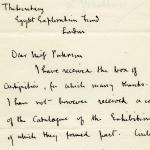 The Secretary
Egypt Exploration Fund
London
Dear Miss Paterson
I have received the box of
Antiquities, for which many thanks.
I have not however received a co
of the Catalogue of the Exhibition
of which they formed part. Coul